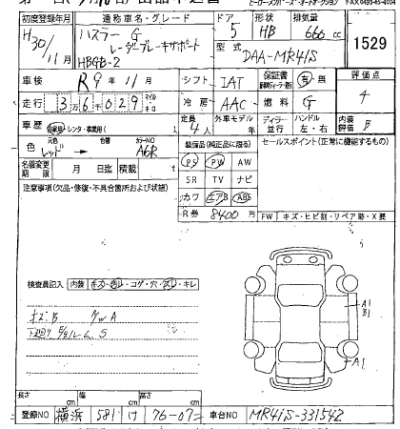 初度登録年月 通称車名・グレード ドア 形状 排気量
H30/11月 ハスラー G 5 HB 660 cc 1529
レーダーブレーキサポート 型式 DAA-MR41S
HBGB-2
車検 R9年11月 シフト IAT 保証書 有・無 評価点
走行 3 6 029 冷房 AAC 燃料 G 4
車歴 自家用・レンタ・事業用( 定員 4人 外車モデル 年 ディラー・並行 ハンドル 左・右 内装評価 B
色 元色 レッド 色替 カラーNO A6R 装備品(純正品に限る) セールスポイント(正常に機能するもの)
名義変更期限 月 日迄 積載 t PS PW AW
注意事項(欠品・修復・不具合箇所および状態) SR TV ナビ
カワ エアB ABS
R券 8400円 FW キズ・ヒビ割・リペア跡・X要
検査員記入 内装 キズ・汚レ・コゲ・穴・スレ・キレ
A1
B1
A1
長さ cm 幅 cm 高さ cm
登録NO 横浜 581 け 76-07 車台NO MR41S-331542